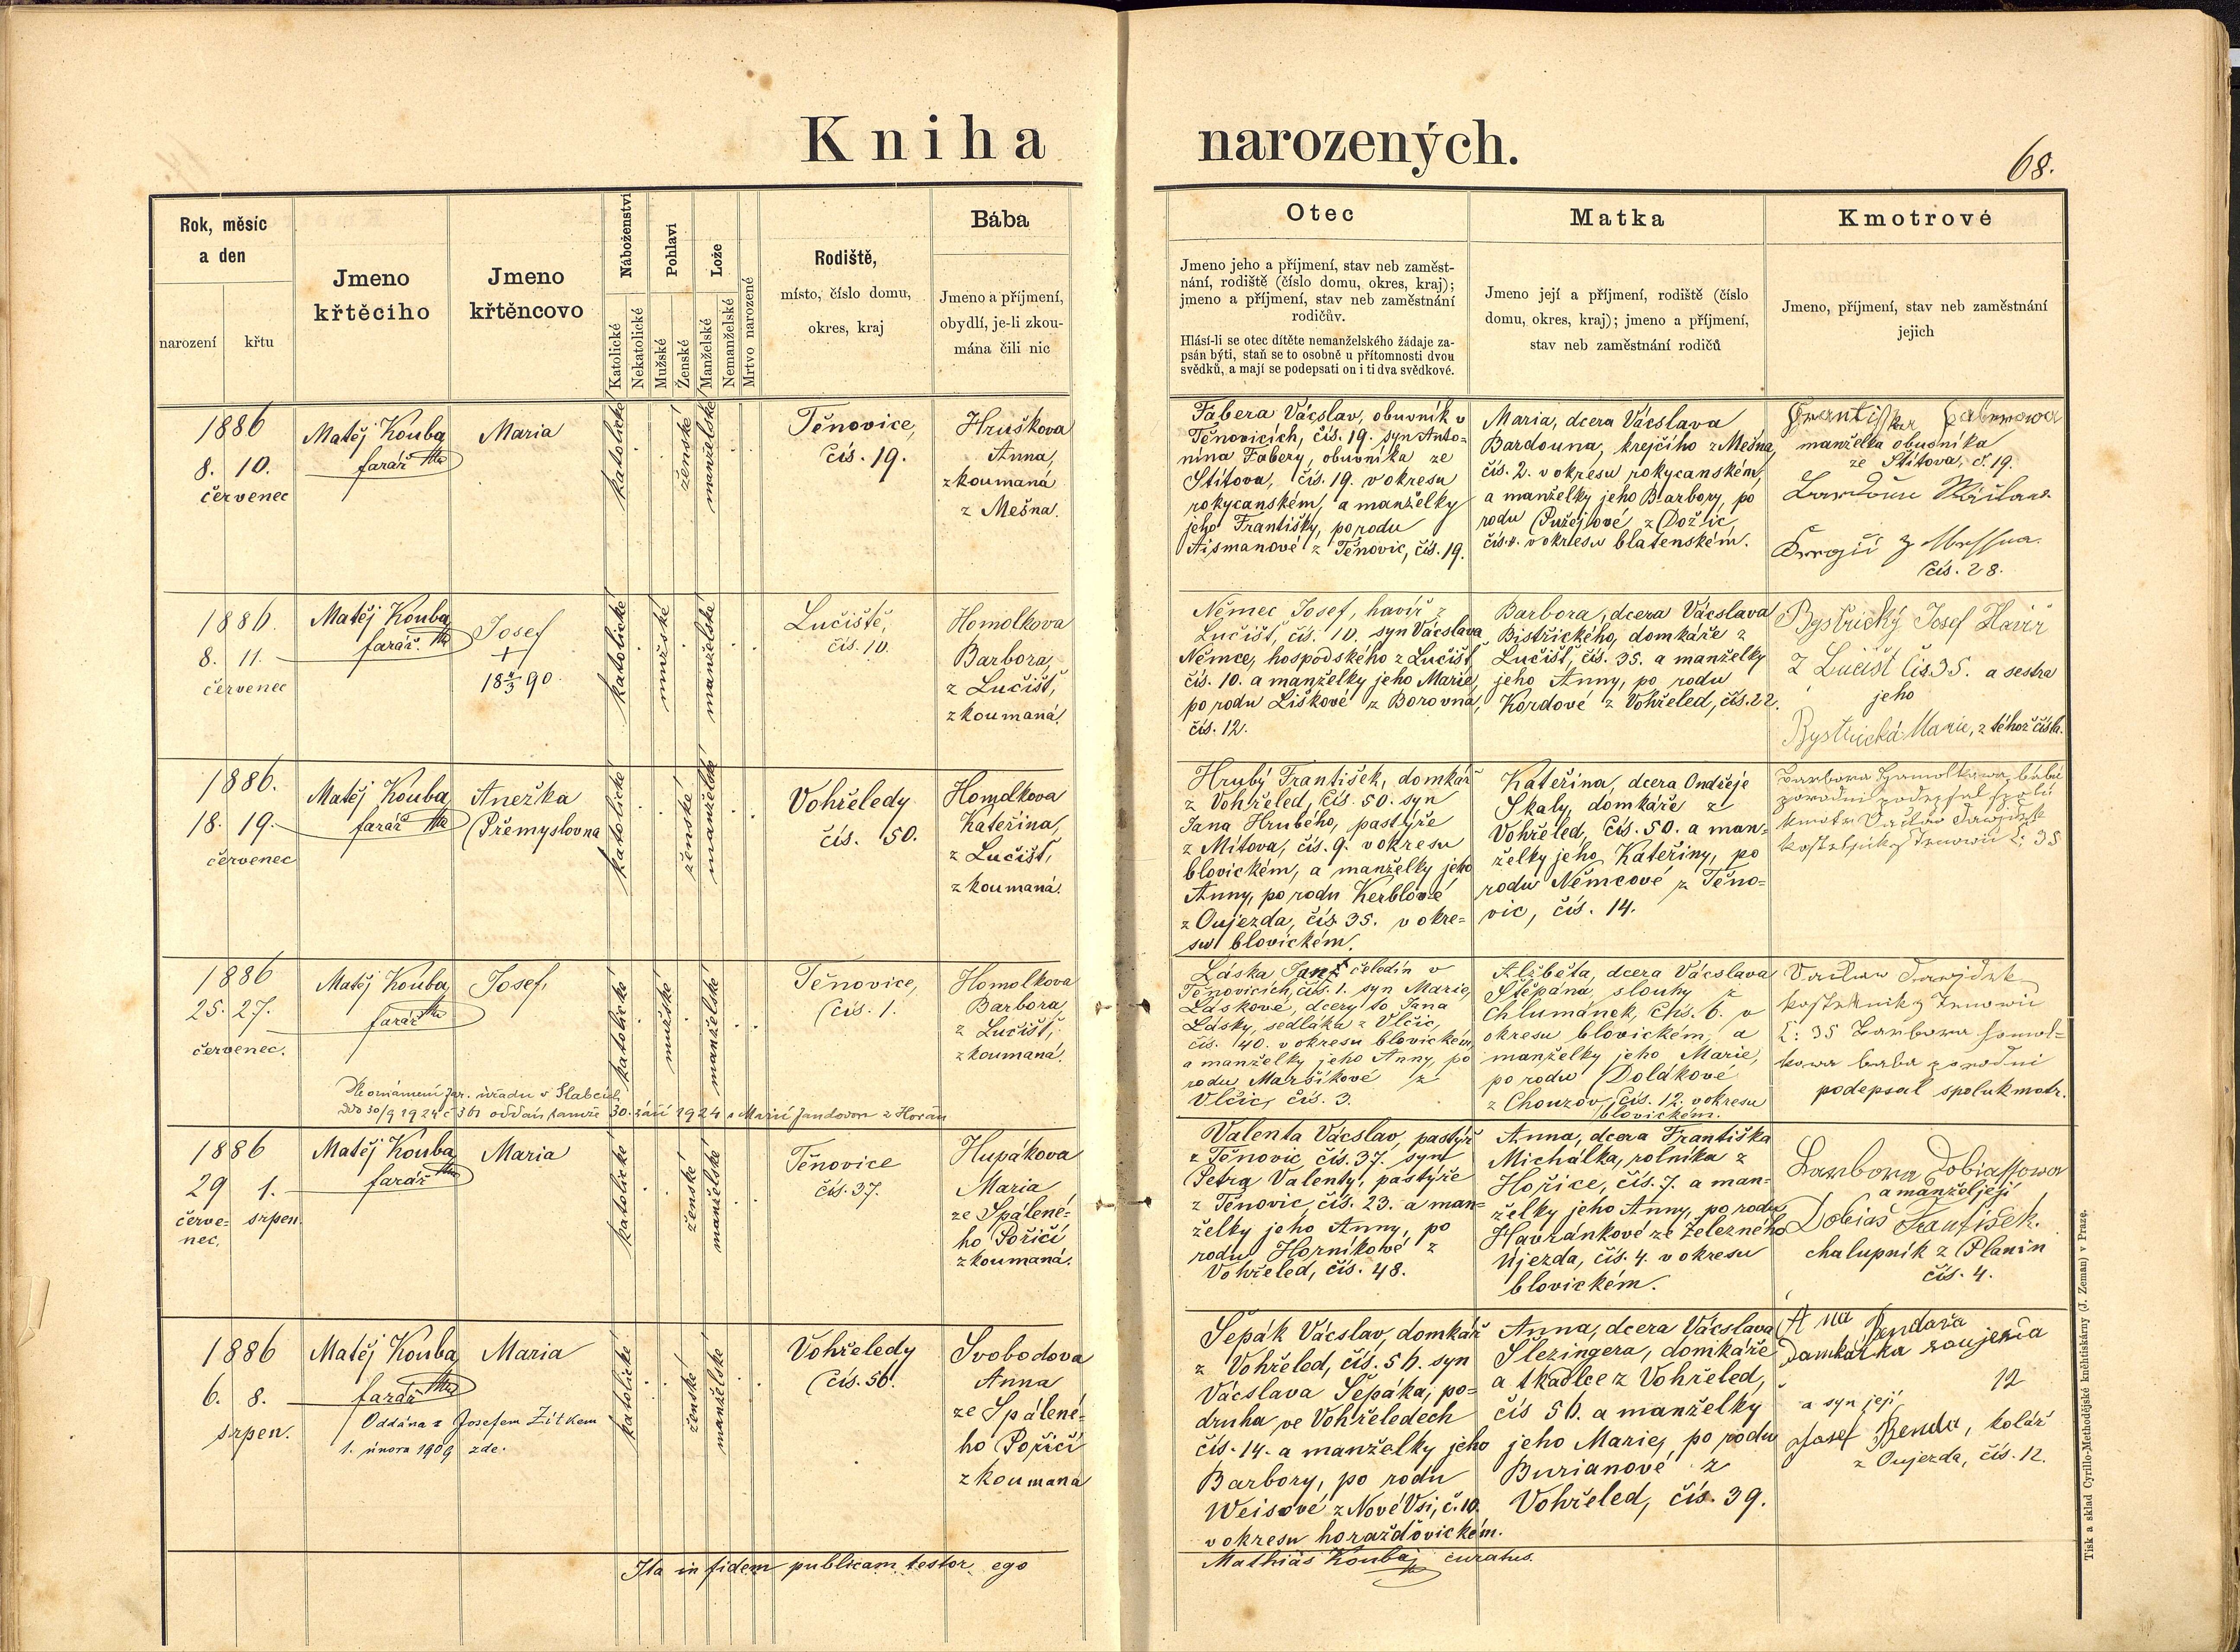 Kniha narozených.
68.
Rok, měsíc
a den
narození
křtu
Jmeno
křtěcího
Jmeno
křtěncovo
Náboženství
Katolické
Nekatolické
Pohlaví
Mužské
Ženské
Lože
Manželské
Nemanželské
Mrtvo narozené
Rodiště,
místo, číslo domu,
okres, kraj
Bába
Jmeno a příjmení,
obydlí, je-li zkou-
mána čili nic
Otec
Jmeno jeho a příjmení, stav neb zaměst-
nání, rodiště (číslo domu, okres, kraj);
jmeno a příjmení, stav neb zaměstnání
rodičův.
Hlásí-li se otec dítěte nemanželského žádaje za-
psán býti, staň se to osobně u přítomnosti dvou
svědků, a mají se podepsati on i ti dva svědkové.
Matka
Jmeno její a příjmení, rodiště (číslo
domu, okres, kraj); jmeno a příjmení,
stav neb zaměstnání rodičů
Kmotrové
Jmeno, příjmení, stav neb zaměstnání
jejich
1886
8. 10.
červenec
Matěj Kouba
farář
Maria
katolické
ženské
manželské
Těnovice,
čís. 19.
Hruškova
Anna,
zkoumaná
z Mešna.
Fabera Vácslav, obuvník v
Těnovicích, čís. 19. syn Anto-
nína Fabery, obuvníka ze
Štítova, čís. 19. v okresu
rokycanském, a manželky
jeho Františky, po rodu
Aismanové z Těnovic, čís. 19.
Maria, dcera Vácslava
Bardouna, krejčího z Mešna,
čís. 2. v okresu rokycanském,
a manželky jeho Barbory, po
rodu Pužejlové z Dožic,
čís. 4. v okresu blatenském.
manželka obuvníka
ze Štítova, č. 19.
čís. 28.
1886.
8. 11.
červenec
Matěj Kouba
farář.
Josef
+
18 4/3 90.
katolické
mužské
manželské
Lučiště,
čís. 10.
Homolkova
Barbora,
z Lučišť,
zkoumaná.
Němec Josef, havíř z
Lučišť, čís. 10. syn Vácslava
Němce, hospodského z Lučišť
čís. 10. a manželky jeho Marie,
po rodu Liškové z Borovna,
čís. 12.
Barbora, dcera Vácslava
Bistřického, domkáře z
Lučišť, čís. 35. a manželky
jeho Anny, po rodu
Kordové z Vohřeled, čís. 22.
Bystřický Josef Havíř
z Lučišť čis 35. a sestra
jeho
Bystřická Marie, z téhož čísla.
1886.
18. 19.
červenec
Matěj Kouba
farář
Anežka
Přemyslovna
katolické
ženské
manželské
Vohřeledy
čís. 50.
Homolkova
Kateřina,
z Lučišť,
zkoumaná.
Hrubý František, domkář
z Vohřeled, čís. 50. syn
Jana Hrubého, pastýře
z Mítova, čís. 9. v okresu
blovickém, a manželky jeho
Anny, po rodu Kerblové
z Oujezda, čís. 35. v okre-
su blovickém.
Kateřina, dcera Ondřeje
Skaly, domkáře z
Vohřeled, čís. 50. a man-
želky jeho Kateřiny, po
rodu Němcové z Těno-
vic, čís. 14.
1886
25. 27.
červenec.
Matěj Kouba
farář
Josef,
katolické
mužské
manželské
Těnovice,
čís. 1.
Homolkova
Barbora,
z Lučišť,
zkoumaná.
Láska Jan, čeledín v
Těnovicích, čís. 1. syn Marie
Láskové, dcery to Jana
Lásky, sedláka z Vlčic,
čís. 40. v okresu blovickém,
a manželky jeho Anny, po
rodu Maršíkové z
Vlčic, čís. 3.
Alžběta, dcera Vácslava
Štěpána, slouhy z
Chlumánek, čís. 6. v
okresu blovickém, a
manželky jeho Marie,
po rodu Dolákové
z Chouzov, čís. 12. v okresu
blovickém.
podepsal spolukmotr.
Dle oznámení far. úřadu v Slabcích
ddo 30/9 1924 č 361 oddán tamže 30. září 1924 s Marií Jandovou z
1886
29 1.
červe- srpen.
nec.
Matěj Kouba
farář
Maria
katolické
ženské
manželské
Těnovice
čís. 37.
Hupákova
Maria
ze Spálené-
ho Poříčí
zkoumaná.
Valenta Vácslav, pastýř
z Těnovic čís. 37. syn
Petra Valenty, pastýře
z Těnovic, čís. 23. a man-
želky jeho Anny, po
rodu Horníkové z
Vohřeled, čís. 48.
Anna, dcera Františka
Michálka, rolníka z
Hořice, čís. 7. a man-
želky jeho Anny, po rodu
Havránkové ze Železného
Újezda, čís. 4. v okresu
blovickém.
a manžel její
Dobiáš
chalupník z Planin
čís. 4.
1886
6. 8.
srpen.
Matěj Kouba
farář
Maria
Oddána s Josefem Žítkem
1. února 1909 zde.
katolické
ženské
manželské
Vohřeledy
čís. 56.
Svobodova
Anna
ze Spálené-
ho Poříčí
zkoumaná
Šepák Vácslav, domkář
z Vohřeled, čís. 56. syn
Vácslava Šepáka, po-
druha ve Vohřeledech
čís. 14. a manželky jeho
Barbory, po rodu
Weisové z Nové Vsi, č. 10.
v okresu horažďovickém.
Anna, dcera Vácslava
Šlezingera, domkáře
a tkadlce z Vohřeled,
čís 56. a manželky
jeho Marie, po rodu
Burianové z
Vohřeled, čís. 39.
12
a syn její
Josef Benda, kolář
z Oujezda, čís. 12.
Ita in fidem publicam testor ego
Mathias Kouba, curatus.
Tisk a sklad Cyrillo-Methodějské kněhtiskárny (J. Zeman) v Praze.